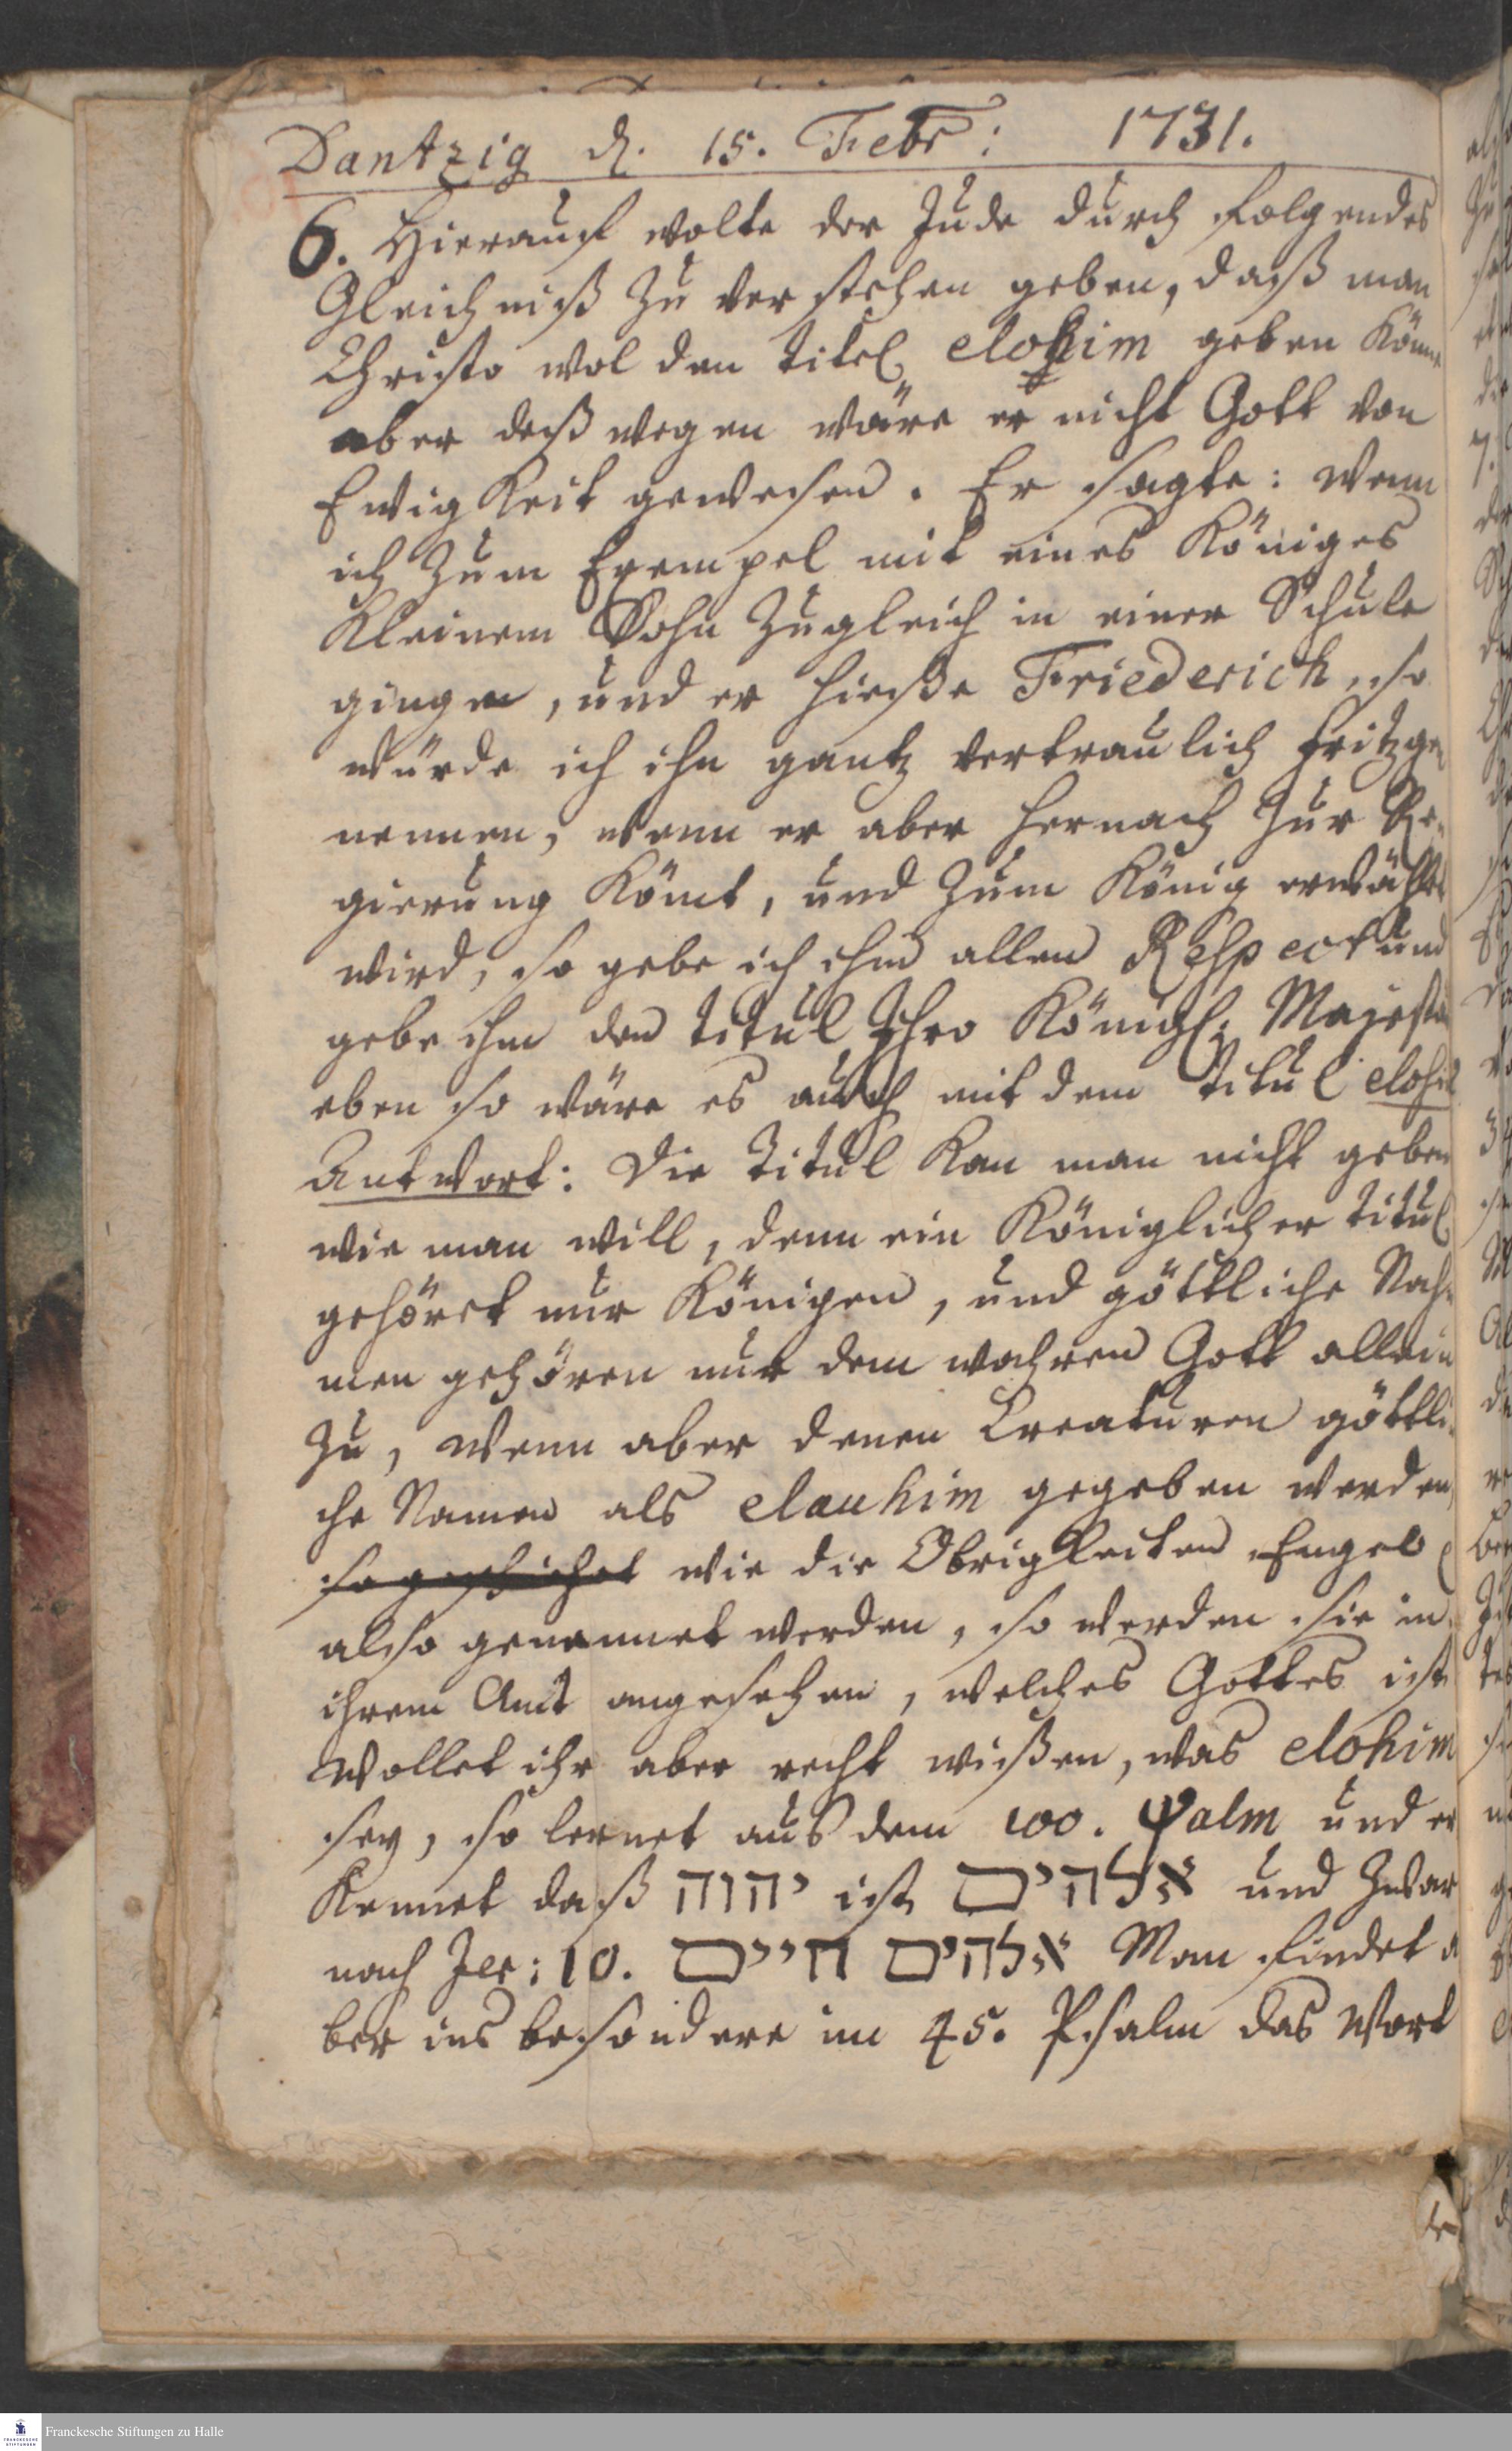 Dantzig d. 15. Febr: 1731.
6. Hierauf wolte der Jude durch folgendes
Gleichniß zu verstehen geben, daß man
Christo wol den Titel elohim geben könne
aber deßwegen wäre er nicht Gott von
Ewigkeit gewesen. Er sagte: wenn
ich zum Exempel mit eines Königes
kleinem Sohn zugleich in einer Schule
gingen, und er hieße Friederich, so
würde ich ihn gantz vertraulich Fritzgen
nennen, wenn er aber hernach zur Re-
gierung kömt, und zum König erwählet
wird, so gebe ich ihm allen Respect und
gebe ihm den titul Ihro Königl: Majestät
eben so wäre es auch mit dem titul elohim
Antwort: Die Titul kan man nicht geben
wie man will, denn ein Königlicher titul
gehöret nur Königen, und göttliche Nah-
men gehören nur dem wahren Gott allein
zu, wenn aber denen Creaturen göttli-
che Namen als elauhim gegeben werden,
so geschiehet wie die Obrigkeiten Engel
also genennet werden, so werden sie in
ihrem Amt angesehen, welches Gottes ist
Wollet ihr aber recht wißen, was elohim
sey, so lernet aus dem 100. ψalm und er
kennet daß יהוה ist אלהים und zwar
nach Jer: 10. אלהים חיים Man findet a
ber ins besondere im 45. Psalm das Wort
Franckesche Stiftungen zu Halle